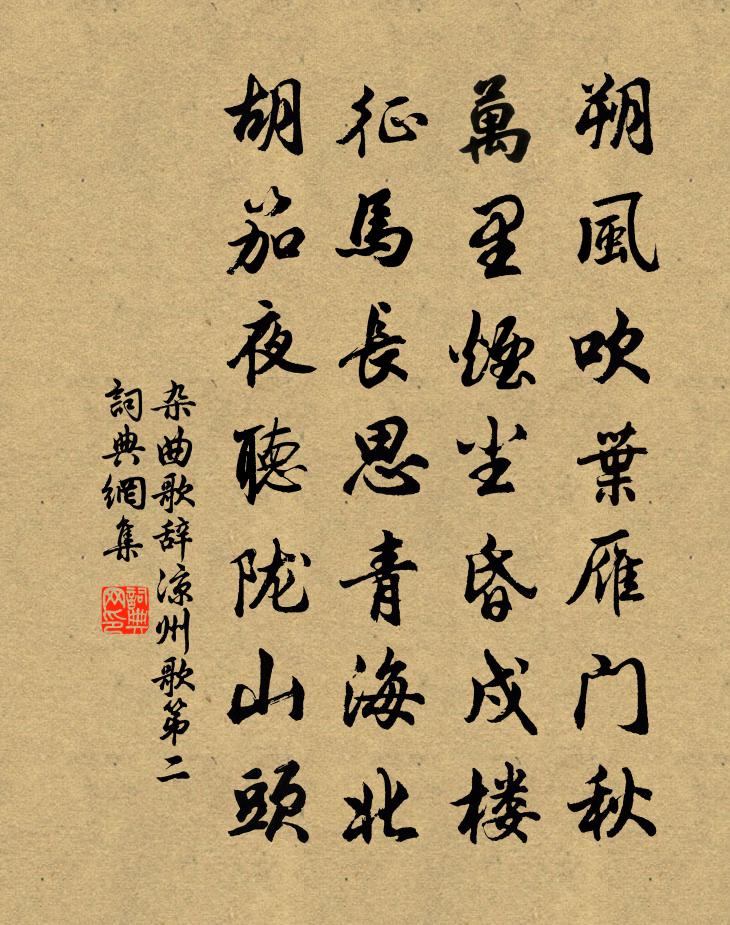 朔風吹葉雁门秋
萬里煙尘昏戍楼
征馬長思青海北
胡笳夜聽陇山頭
杂曲歌辞凉州歌第二
詞典網集
詞典网印